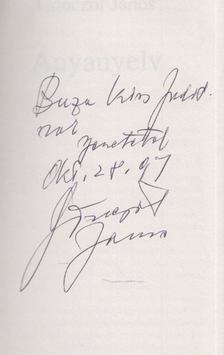 Anyanyelv
Buza Kiss Judit.
nak
szeretettel
Okt. 28. 97
János